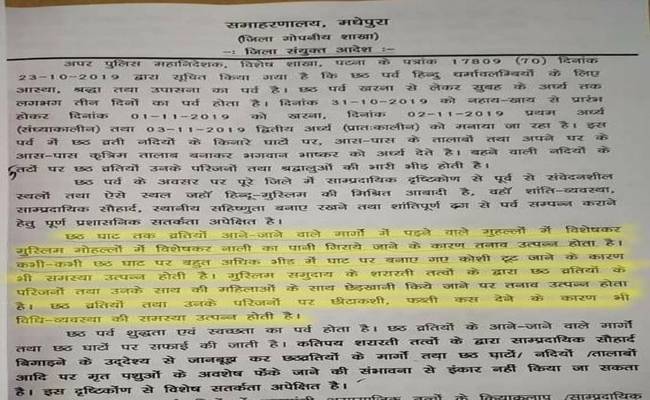 समाहरणालय, मधेपुरा
(जिला गोपनीय शाखा)
-: जिला संयुक्त आदेश :-
अपर पुलिस महानिदेशक, विशेष शाखा, पटना के पत्रांक 17809 (70) दिनांक
23-10-2019 द्वारा सूचित किया गया है कि छठ पर्व हिन्दु धर्मावलम्बियों के लिए
आस्था, श्रद्धा तथा उपासना का पर्व है। छठ पर्व खरना से लेकर सुबह के अर्ध्य तक
लगभग तीन दिनों का पर्व होता है। दिनांक 31-10-2019 को नहाय-खाय से प्रारंभ
होकर दिनांक 01-11-2019 को खरना, दिनांक 02-11-2019 प्रथम अर्ध्य
(संध्याकालीन) तथा 03-11-2019 द्वितीय अर्ध्य (प्रातःकालीन) को मनाया जा रहा है। इस
पर्व में छठ व्रती नदियों के किनारे घाटों पर, आस-पास के तालाबों तथा अपने घर के
आस-पास कृत्रिम तालाब बनाकर भगवान भाष्कर को अर्ध्य देते है। बहने वाली नदियों के
तटों पर छठ व्रतियों उनके परिजनों तथा श्रद्धालुओं की भारी भीड़ होती है।
छठ पर्व के अवसर पर पूरे जिले में साम्प्रदायिक दृष्टिकोण से पूर्व से संवेदनशील
स्थलों तथा ऐसे स्थल जहाँ हिन्दू-मुस्लिम की मिश्रित आबादी है, वहाँ शांति-व्यवस्था,
साम्प्रदायिक सौहार्द, स्थानीय सहिष्णुता बनाए रखने तथा शांतिपूर्ण ढ़ग से पर्व सम्पन्न कराने
हेतु पूर्ण प्रशासनिक सतर्कता अपेक्षित है।
छठ घाट तक व्रतियों आने-जाने वाले मार्गो में पड़ने वाले मुहल्लों में विशेषकर
मुस्लिम मोहल्लों में विशेषकर नाली का पानी गिराये जाने के कारण तनाव उत्पन्न होता है।
कभी-कभी छठ घाट पर बहुत अधिक भीड़ में घाट पर बनाए गए कोशी टूट जाने के कारण
भी समस्या उत्पन्न होती है। मुस्लिम समुदाय के शरारती तत्वों के द्वारा छठ व्रतियों के
परिजनों तथा उनके साथ की महिलाओं के साथ छेड़खानी किये जाने पर तनाव उत्पन्न होता
है। छठ व्रतियों तथा उनके परिजनों पर छीटाकशी, फब्ती कस देने के कारण भी
विधि-व्यवस्था की समस्या उत्पन्न होती है।
छठ पर्व शुद्धता एवं स्वच्छता का पर्व होता है। छठ व्रतियों के आने-जाने वाले मार्गों
तथा छठ घाटों पर सफाई की जाती है। कतिपय शरारती तत्वों के द्वारा साम्प्रदायिक सौहार्द
बिगाड़ने के उद्देश्य से जानबूझ कर छठव्रतियों के मार्गों तथा छठ घाटों/ नदियों /तालाबों
आदि पर मृत पशुओं के अवशेष फेंके जाने की संभावना से इंकार नहीं किया जा सकता
है। इस दृष्टिकोण से विशेष सतर्कता अपेक्षित है।
असामाजिक तत्वों के क्रियाकलाप /साम्प्रदायिक